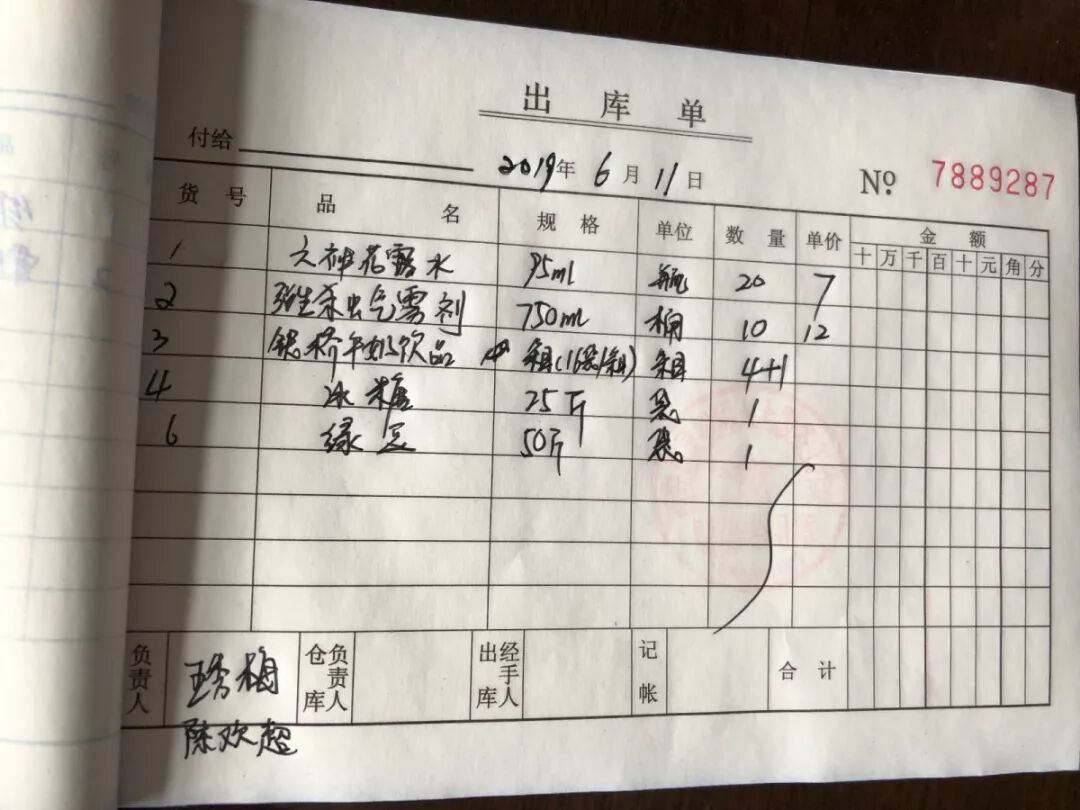 出库单
付给
2019年6月11日
№ 7889287
货号 品名 规格 单位 数量 单价 金额
十 万 千 百 十 元 角 分
1 六神花露水 95ml 瓶 20 7
2 杀虫气雾剂 750ml 桶 10 12
3 银桥牛奶饮品 组(16袋/组) 组 4+1
4 冰糖 25斤 袋 1
6 绿豆 50斤 袋 1
负责人 仓库负责人 出库经手人 记帐 合计
陈欢超